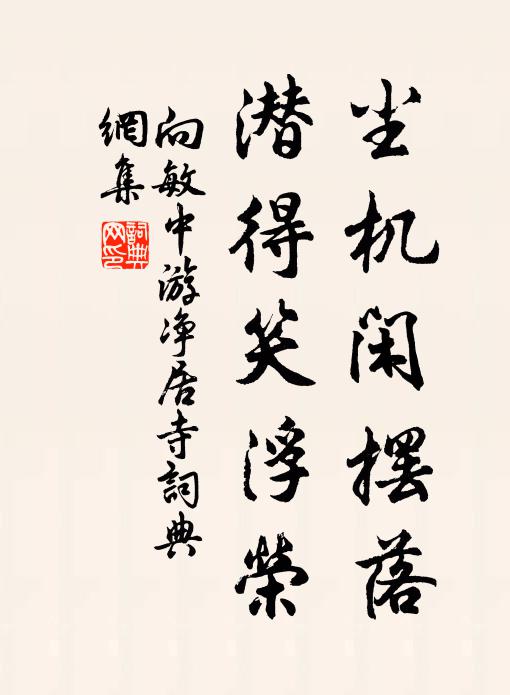 尘机闲摆落
潜得笑浮荣
向敏中游净居寺詞典
網集
詞典网印